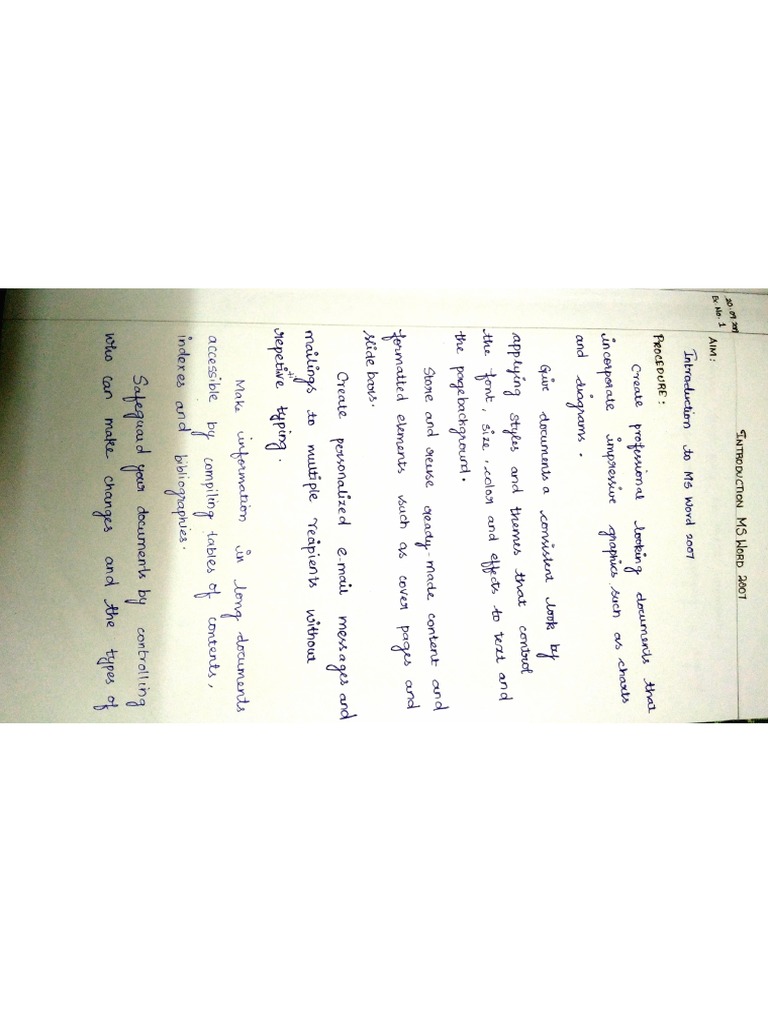 INTRODUCTION MS WORD 2007
Ex. No. 1
AIM:
Introduction to MS Word 2007
PROCEDURE:
Create professional looking documents that
incorporate impressive graphics such as charts
and diagrams.
Give documents a consistent look by
applying styles and themes that control
the font, size, color and effects to text and
the pagebackground.
Store and reuse ready-made content and
formatted elements such as cover pages and
slide bars.
Create personalized e-mail messages and
mailings to multiple recipients without
repetitive typing.
Make information in long documents
accessible by compiling tables of contents,
indexes and bibliographies.
Safeguard your documents by controlling
who can make changes and the types of